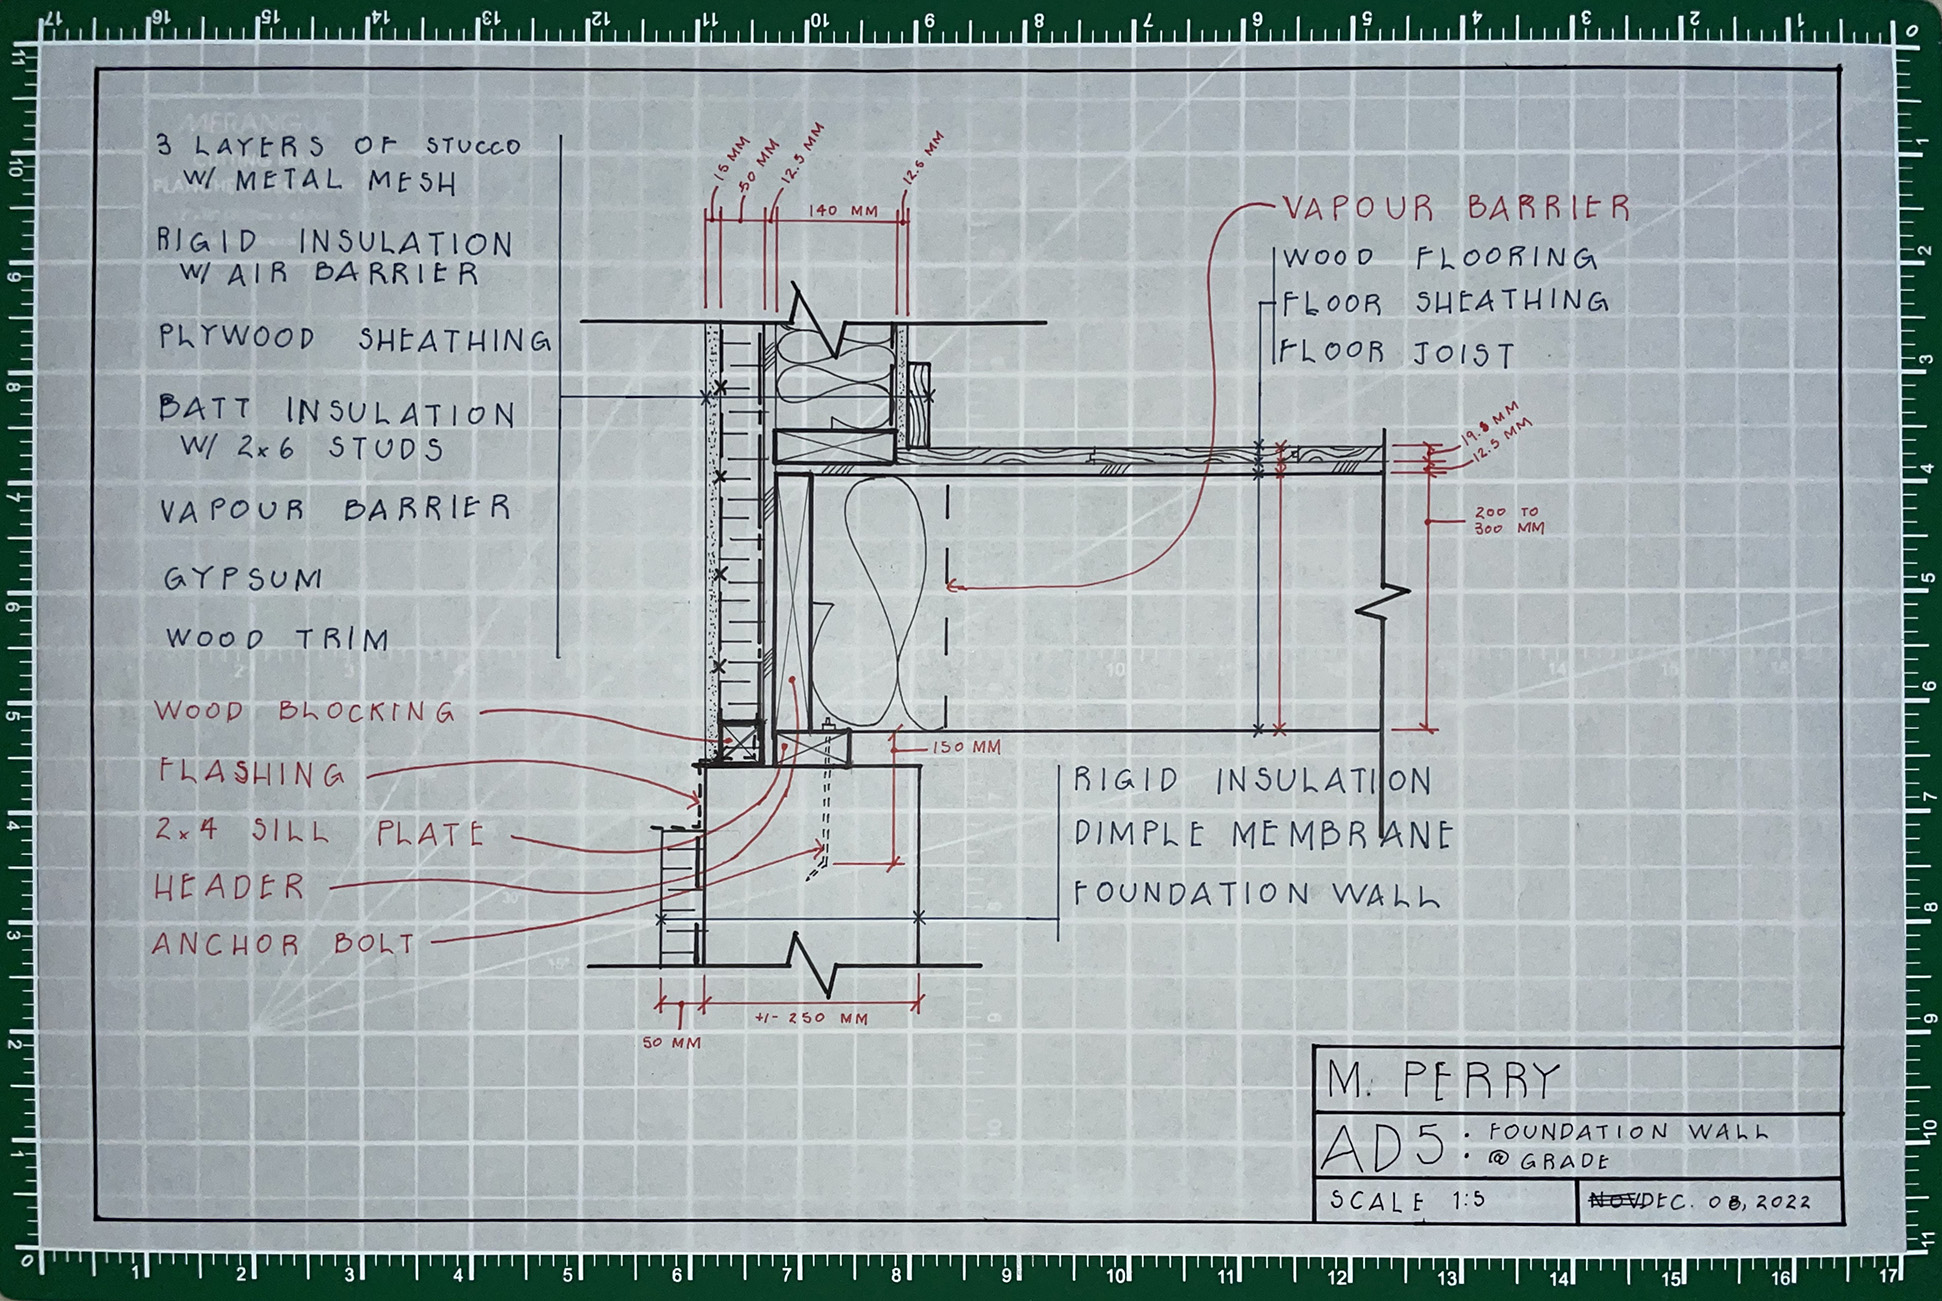 3 LAYERS OF STUCCO
W/ METAL MESH
RIGID INSULATION
W/ AIR BARRIER
PLYWOOD SHEATHING
BATT INSULATION
W/ 2x6 STUDS
VAPOUR BARRIER
GYPSUM
WOOD TRIM
WOOD BLOCKING
FLASHING
2x4 SILL PLATE
HEADER
ANCHOR BOLT
15 MM
50 MM
12.5 MM
140 MM
12.5 MM
VAPOUR BARRIER
WOOD FLOORING
FLOOR SHEATHING
FLOOR JOIST
19.5 MM
12.5 MM
200 TO
300 MM
150 MM
RIGID INSULATION
DIMPLE MEMBRANE
FOUNDATION WALL
+/- 250 MM
50 MM
M. PERRY
AD5: FOUNDATION WALL
@ GRADE
SCALE 1:5
DEC. 08, 2022
17 16 15 14 13 12 11 10 9 8 7 6 5 4 3 2 1 0
11 10 9 8 7 6 5 4 3 2 1 0
1 2 3 4 5 6 7 8 9 10 11
1 2 3 4 5 6 7 8 9 10 11 12 13 14 15 16 17